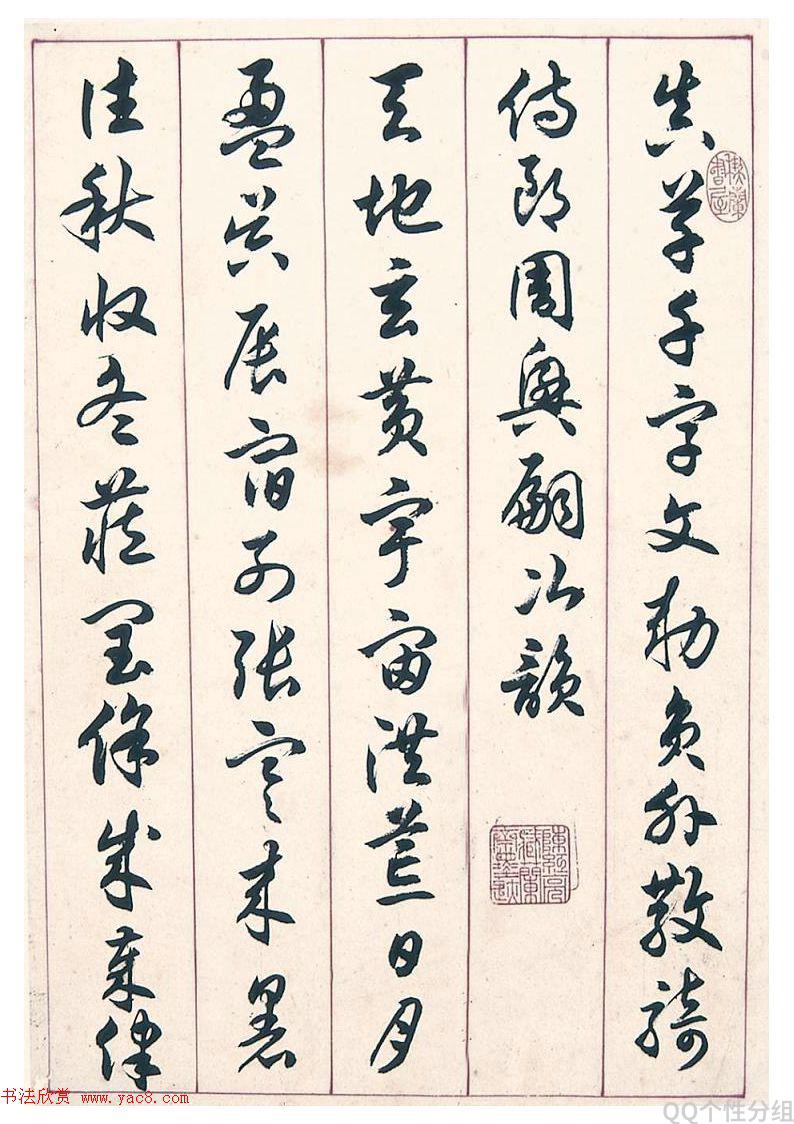 真草千字文勅員外散騎
侍郎周興嗣次韻
天地玄黄宇宙洪荒日月
盈昃辰宿列張寒来暑
往秋收冬藏閏餘成歲律
书法欣赏 www.yac8.com
QQ个性分组